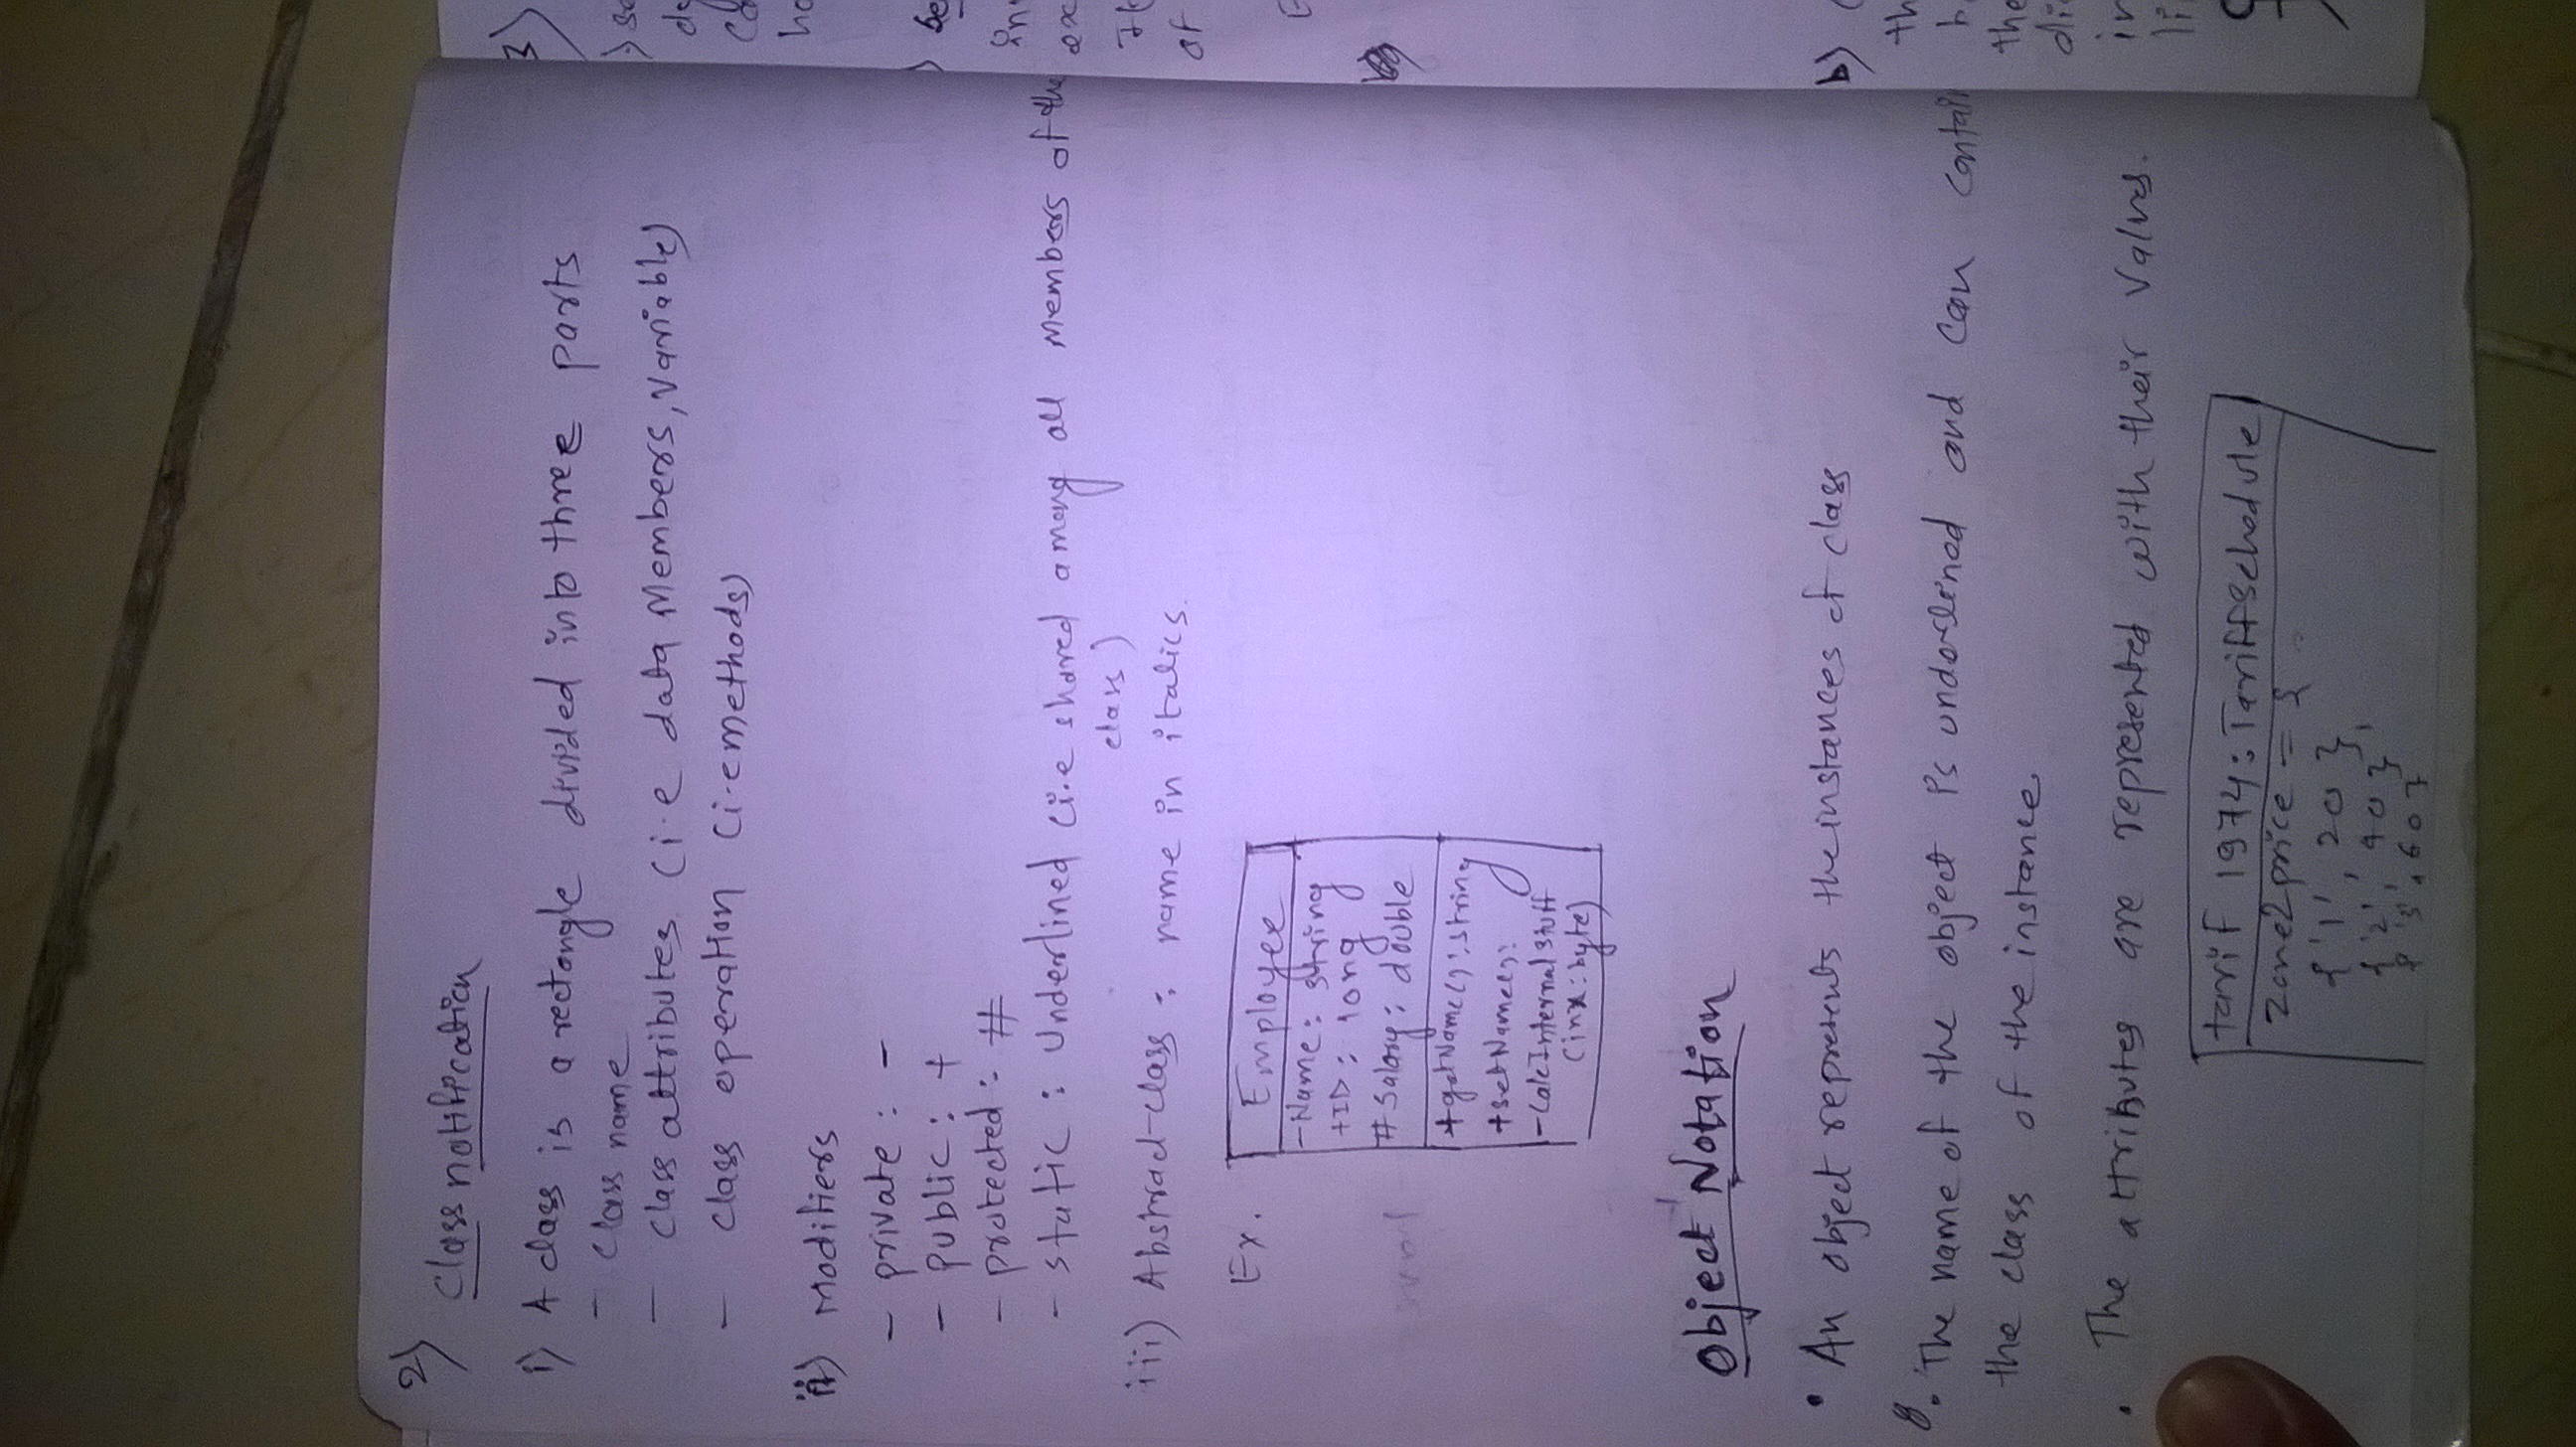 2) Class notification
i) A class is a rectangle divided into three parts
- class name
- class attributes (i.e data Members, variable)
- class operation (i.e methods)
ii) Modifiers
- private : -
- public : +
- protected : #
- static : Underlined (i.e shared among all Members of the
class)
iii) Abstract-class : name in italics.
Ex.
Employee
-Name: string
+ID: long
# Salary: double
+getName(): string
+setName():
-CalcInternalStuff
(inx: byte)
Object Notation
• An object represents the instances of class
• The name of the object is underlined and can contain
the class of the instance
• The attributes are represented with their values.
tarif 1974: Tariffschedule
zone2price = {
{'1', 20 },
{'2', 40 },
'3', 60 }
3)
b)